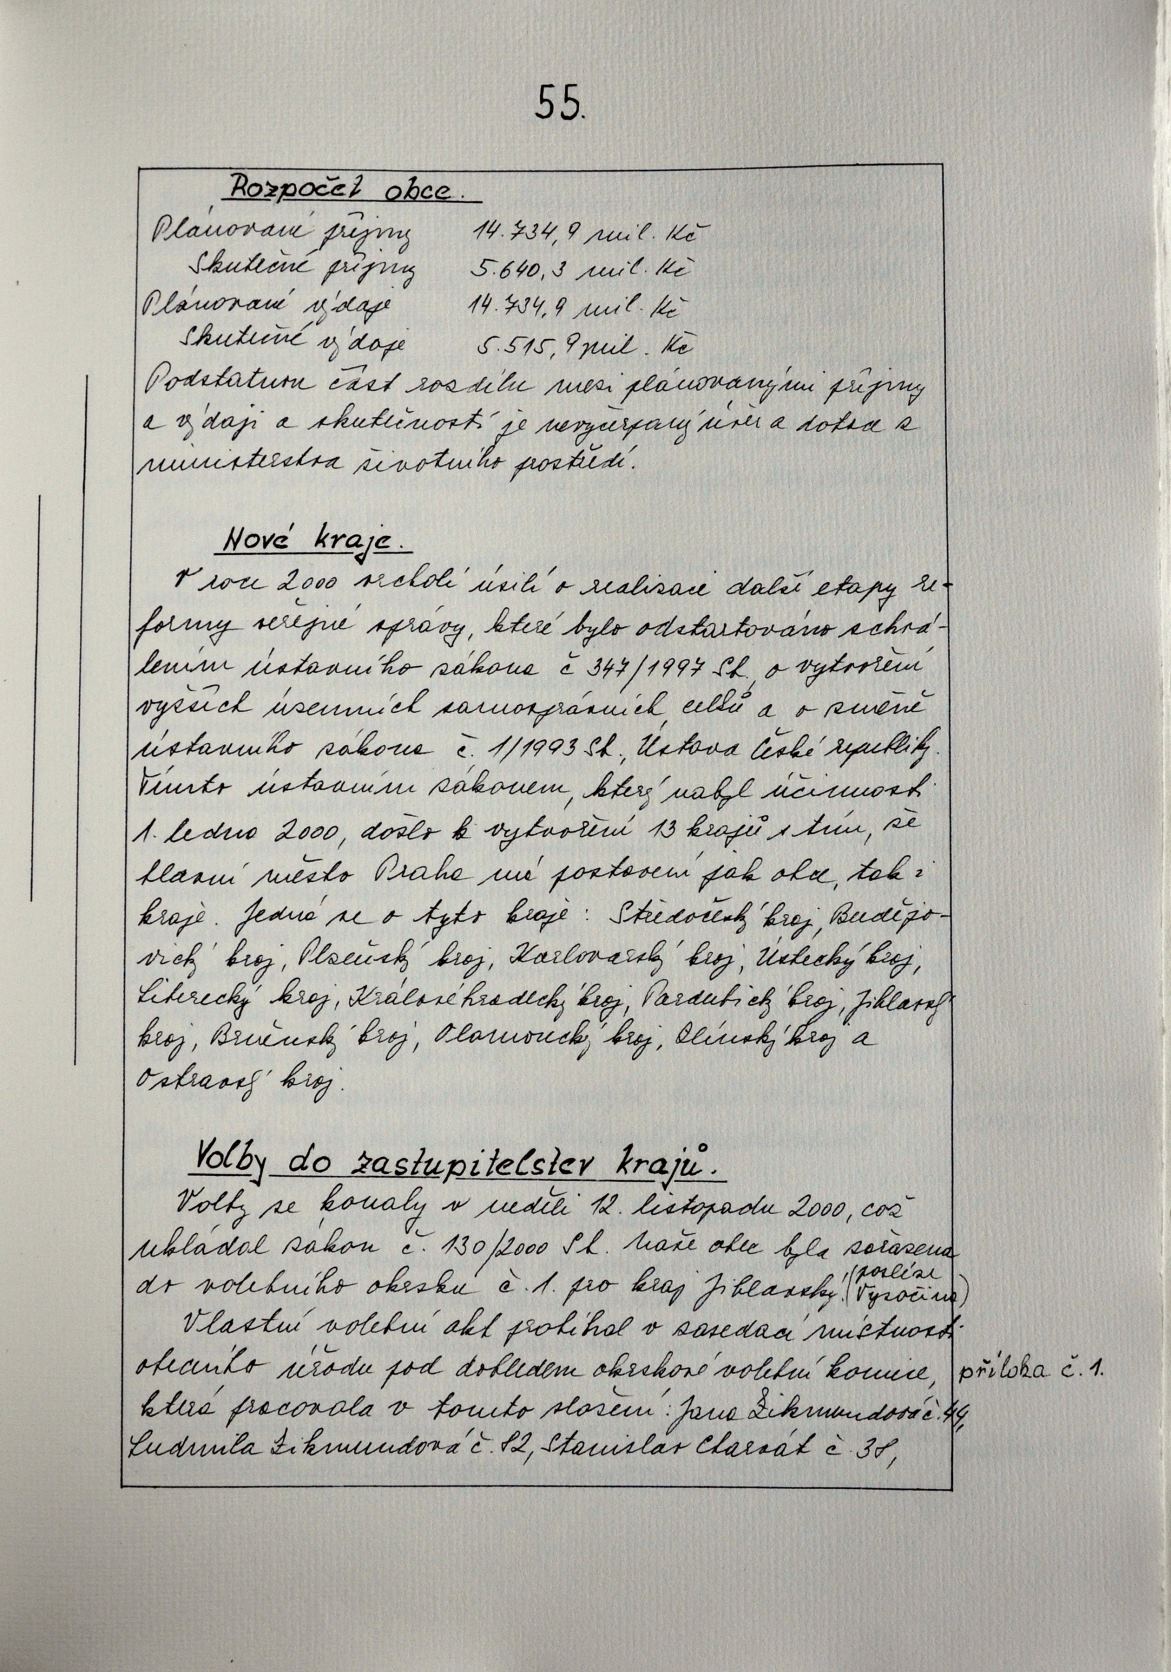 55.
Rozpočet obce.
Plánované příjmy 14.734,9 mil. Kč
Skutečné příjmy 5.640,3 mil. Kč
Plánované výdaje 14.734,9 mil. Kč
Skutečné výdaje 5.515,9 mil. Kč
Podstatnou část rozdílu mezi plánovanými příjmy
a výdaji a skutečností je nevyčerpaný úvěr a dotace z
ministerstva životního prostředí.
Nové kraje.
V roce 2000 vrcholí úsilí o realizaci další etapy re-
formy veřejné správy, které bylo odstartováno schvá-
lením ústavního zákona č 347/1997 Sb., o vytvoření
vyšších územních samosprávních celků a o změně
ústavního zákona č. 1/1993 Sb., Ústava České republiky.
Tímto ústavním zákonem, který nabyl účinnosti
1. ledna 2000, došlo k vytvoření 13 krajů s tím, že
hlavní město Praha má postavení jak obce, tak i
kraje. Jedná se o tyto kraje: Středočeský kraj, Budějo-
vický kraj, Plzeňský kraj, Karlovarský kraj, Ústecký kraj,
Liberecký kraj, Královéhradecký kraj, Pardubický kraj, Jihlavský
kraj, Brněnský kraj, Olomoucký kraj, Zlínský kraj a
Ostravský kraj.
Volby do zastupitelstev krajů.
Volby se konaly v neděli 12. listopadu 2000, což
ukládal zákon č. 130/2000 Sb. Naše obec byla zařazena
do volebního okrsku č. 1. pro kraj Jihlavský. (posléze Vysočina)
Vlastní volební akt probíhal v zasedací místnosti
obecního úřadu pod dohledem okrskové volební komise, příloha č. 1.
která pracovala v tomto složení: Jana Zikmundová č. 44,
Ludmila Zikmundová č. 82, Stanislav Charvát č. 38,